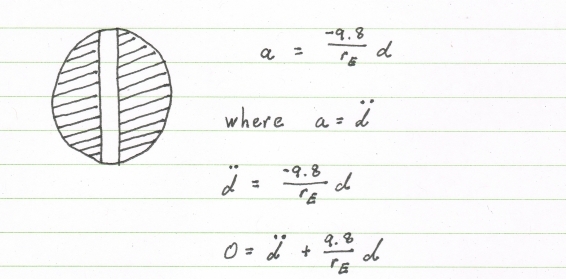 a = -9.8/r_E d
where a = d̈
d̈ = -9.8/r_E d
0 = d̈ + 9.8/r_E d